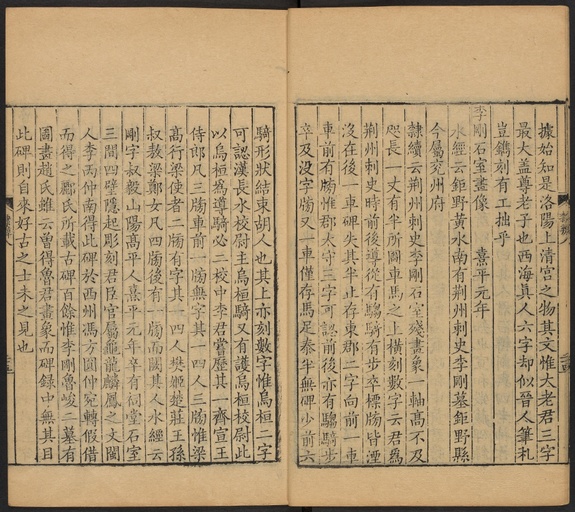 據始知是洛陽上清宮之物其文惟大老君三字
最大蓋尊老子也西海眞人六字却似晉人筆札
豈鐫刻有工拙乎
李剛石室畫像 熹平元年
水經云鉅野黃水南有荆州刺史李剛墓鉅野縣
今屬兖州府
隸續云荆州刺史李剛石室殘畫象一軸高不及
咫長一丈有半所圖車馬之上橫刻數字云君爲
荆州刺史時前後導從有騶騎有步卒標牓皆湮
沒在後一車碑失其半止存東郡二字向前一車
車前有牓惟郡太守三字可認前後亦有騶騎步
卒及没字牓又一車僅存馬足泰半無碑少前六
騎形狀結束胡人也其上亦刻數字惟烏桓二字
可認漢長水校尉主烏桓騎又有護烏桓校尉此
以烏桓爲導騎必二校中李君嘗歷其一齊宣王
侍郎凡三牓車前一牓無字其一四人三牓惟梁
高行梁使者二牓有字其一四人樊姬楚莊王孫
叔敖梁鄭女凡四牓後有一牓而闕其人水經云
剛字叔毅山陽高平人熹平元年卒有祠堂石室
三間四壁隱起彫刻君臣官屬龜龍麟鳳之文闔
人李丙仲南得此碑於西州馮方圓仲宛轉假借
而得之酈氏所載古碑百餘惟李剛魯峻二墓有
圖畫趙氏雖云曾得魯君畫象而碑録中無其目
此碑則自來好古之士未之見也